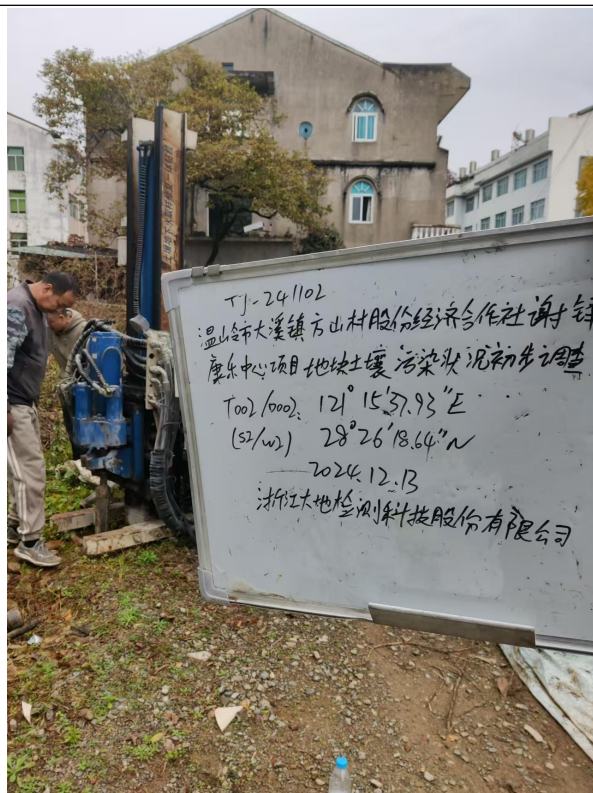 TJ-241102
温岭市大溪镇方山村股份经济合作社谢铎
康乐中心项目地块土壤污染状况初步调查
T002/D002: 121°15'37.93"E
(S2/W2) 28°26'18.64"N
2024.12.13
浙江大地检测科技股份有限公司